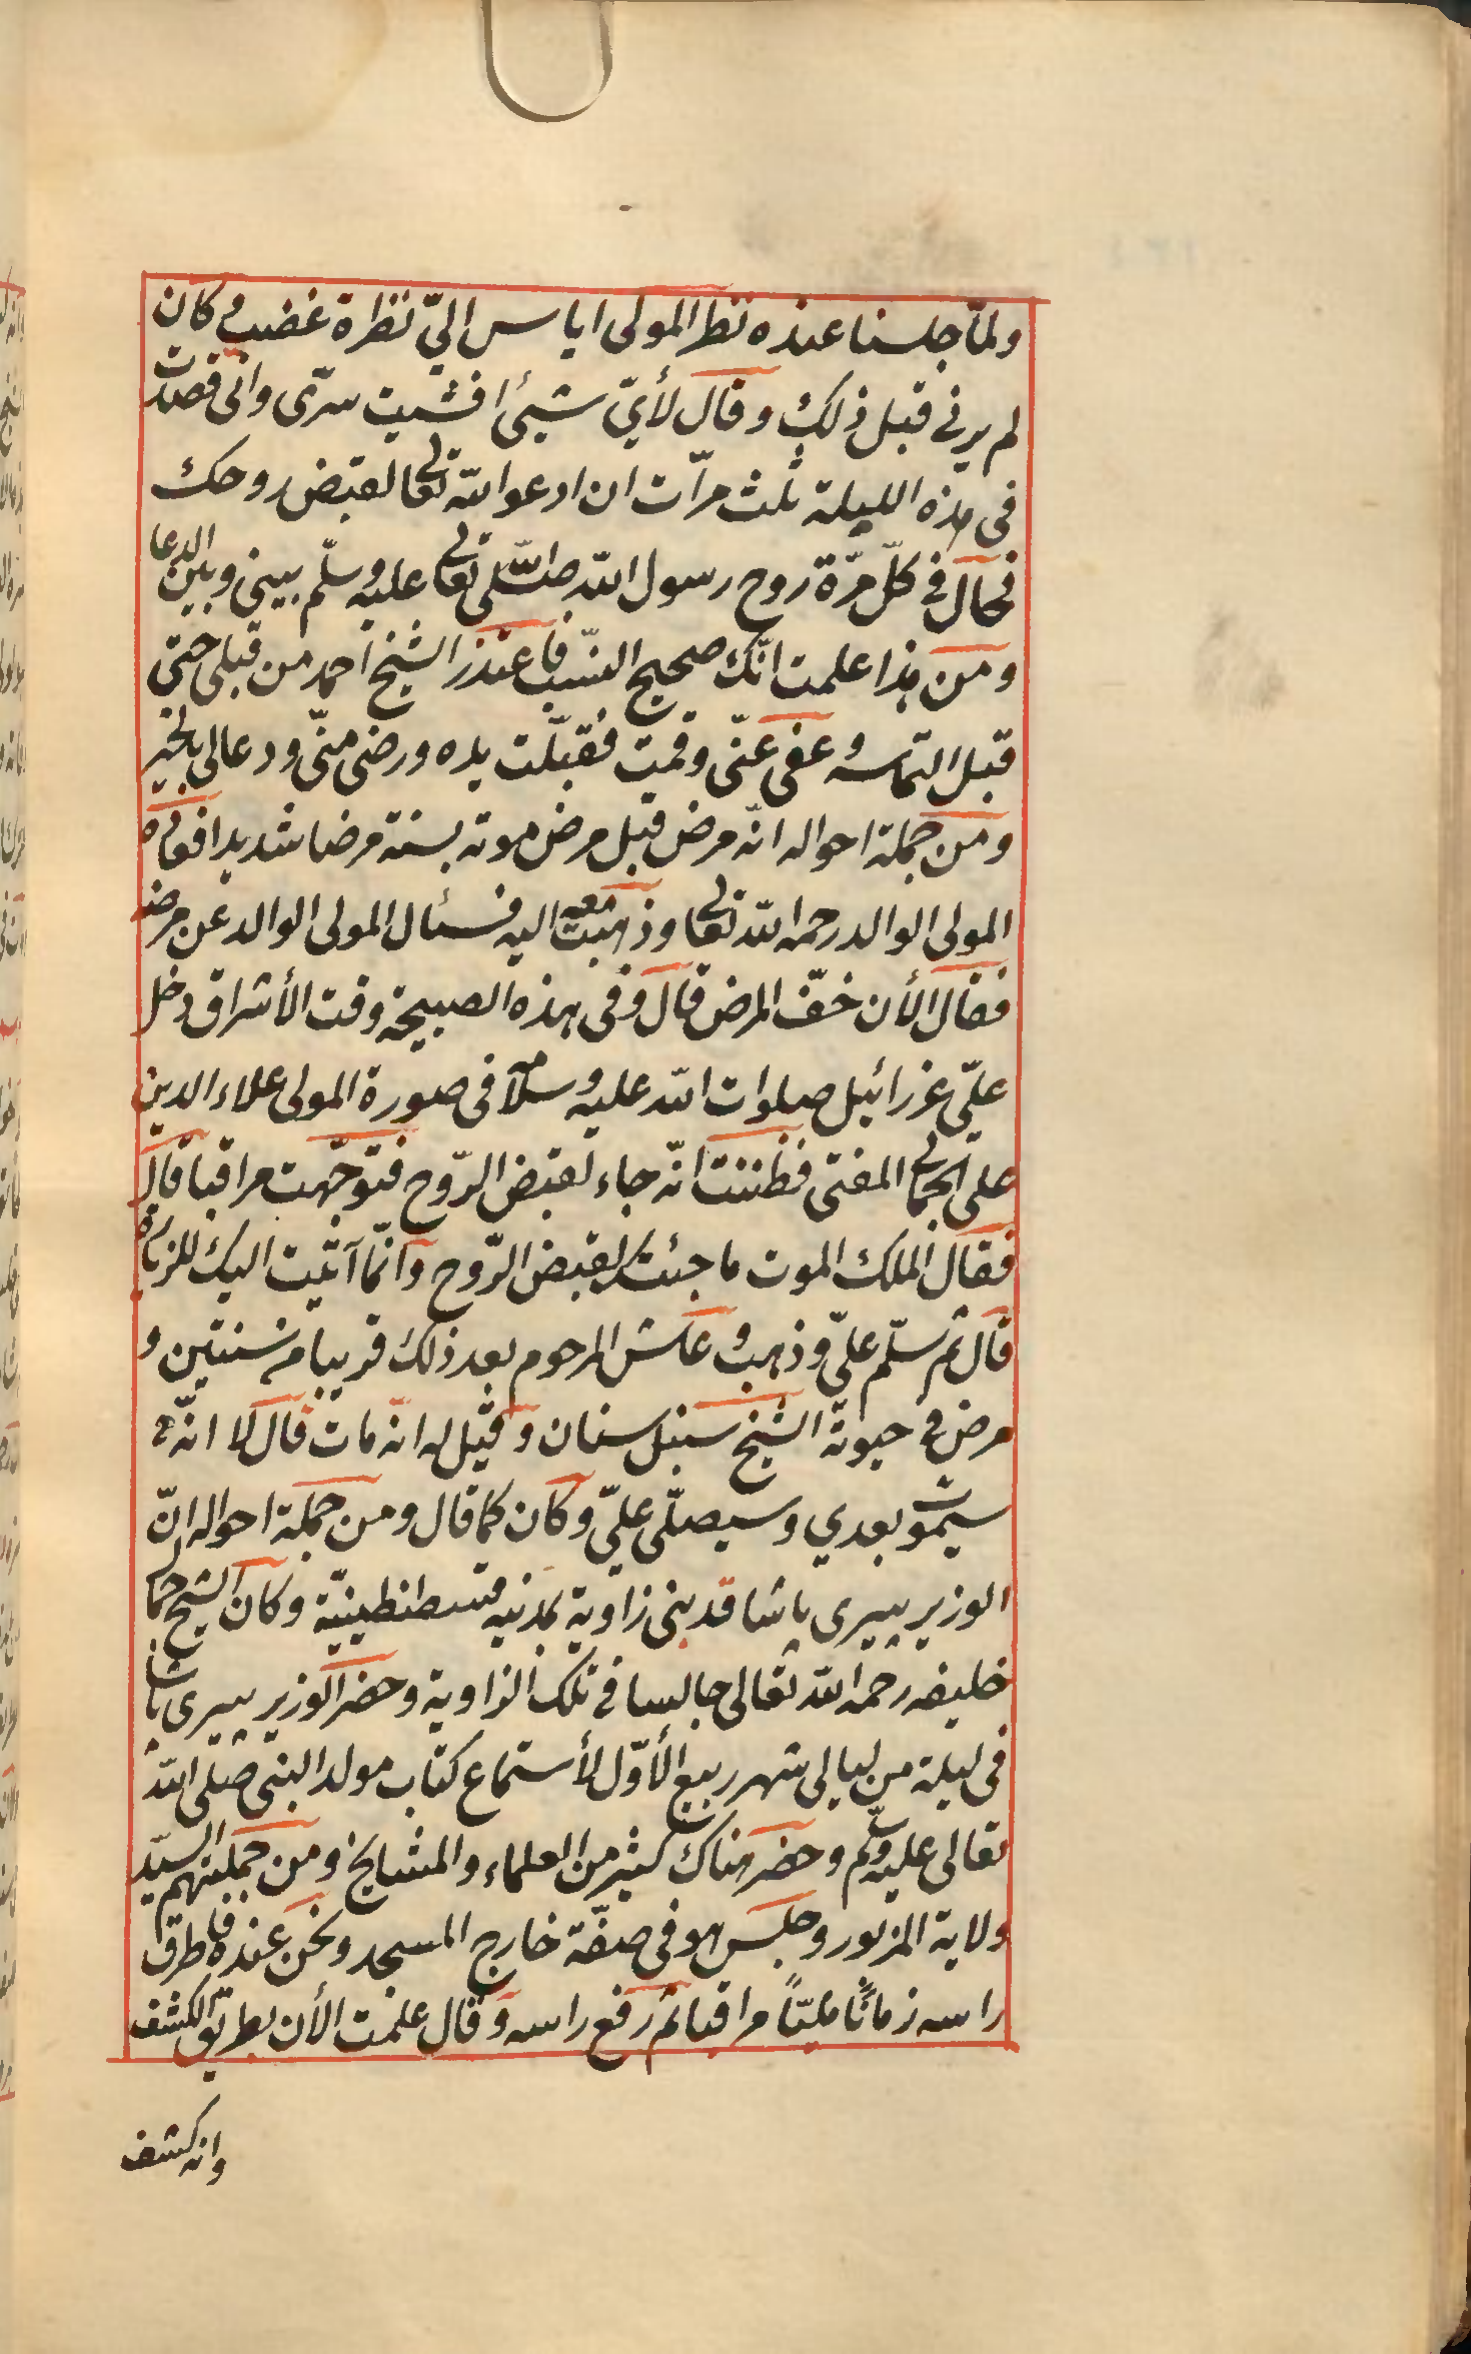 ولمّا جلسنا عنده نظر المولى اياس اليّ نظرة غضب وكان
لم يرني قبل ذلك وقال لأيّ شيئ افشيت سرّى وانّى قصدت
فى هذه الليلة ثلث مرّات ان ادعو الله تعالى لقبض روحك
فحال فى كلّ مرّة روح رسول الله صلى الله تعالى عليه وسلّم بينى وبين الدعا
ومن هذا علمت انّك صحيح النّسب فاعتذر الشيخ احمد من قبلى حتى
قبل التماسه وعفى عنّى وقمت فقبّلت يده ورضى منّى ودعا لى بالخير
ومن جملة احواله انّه مرض قبل مرض موته بسنة مرضا شديدا فعاده
المولى الوالد رحمه الله تعالى وذهبت معه اليه فسئال المولى الوالد عن مرضه
فقال الأن خفّ المرض قال وفى هذه الصبيحة وقت الأشراق دخل
علىّ عزرائيل صلوات الله عليه وسلامه فى صورة المولى علاء الدين
على الجمالى المفتى فظننت انّه جاء لقبض الرّوح فتوجّهت مراقبا قال
فقال الملك الموت ما جئت لقبض الرّوح وانّما آتيت اليك للزيارة
قال ثم سلّم علىّ وذهب وعاش المرحوم بعد ذلك قريبا من سنتين و
مرض فى حيوته الشيخ سنبل سنان وقيل له انه مات قال لا انّه
سيموت بعدي وسيصلّى علىّ وكان كما قال ومن جملة احواله انّ
الوزير بيرى پاشا قد بنى زاوية بمدنيه قسطنطينيّة وكان الشيخ جمال
خليفه رحمه الله تعالى جالسا فى تلك الزاوية وحضر الوزير بيرى پاشا
فى ليلة من ليالى شهر ربيع الأوّل لأستماع كتاب مولد النبى صلّى الله
تعالى عليه وسلّم وحضر هناك كثير من العلماء والمشايخ ومن جملتهم السيّد
ولاية المزبور وجلس هو فى صفّة خارج المسجد ونحن عنده فاطرق
راسه زماناً مليّاً مراقبا ثم رفع راسه وقال علمت الأن بطريق الكشف
وانه كشف